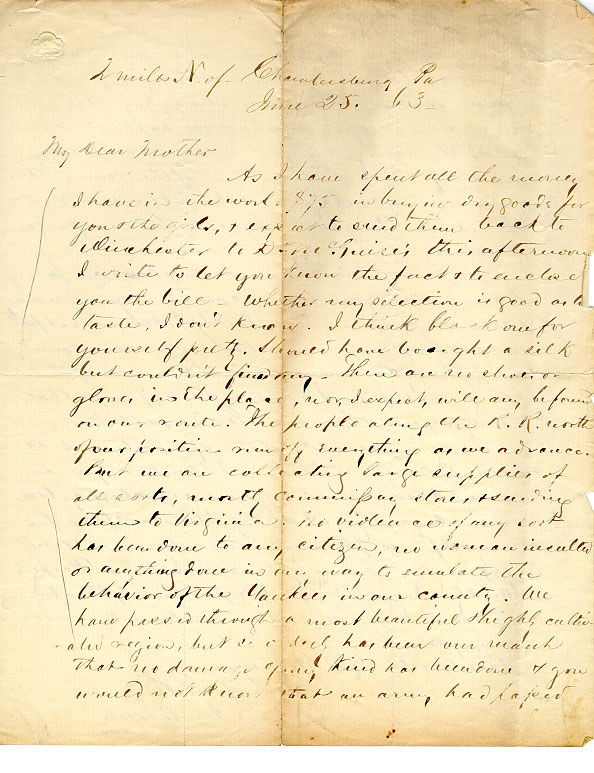 2 miles N. of Chambersburg Pa
June 25. 63
My Dear Mother
As I have spent all the money
I have in the world $75 in buying dry goods for
you & the girls, & expect to send them back to
Winchester to Dr McGuire's this afternoon
I write to let you know the fact & to enclose
you the bill - Whether my selection is good as to
taste, I don't know. I think black one for
yourself pretty. Should have bought a silk
but couldn't find any - There are no shoes or
gloves in the place, nor, I expect, will any be found
on our route. The people along the R. R. north
of our position run off everything as we advance.
But we are collecting large supplies of
all sorts, mostly commissary stores & sending
them to Virginia. No violence of any sort
has been done to any citizen, no woman insulted
or anything done in any way to emulate the
behavior of the Yankees in our county. We
have passed through a most beautiful & highly culti-
ated region, but has been our march
that no damage of any kind has been done & you
would not know that an army had passed